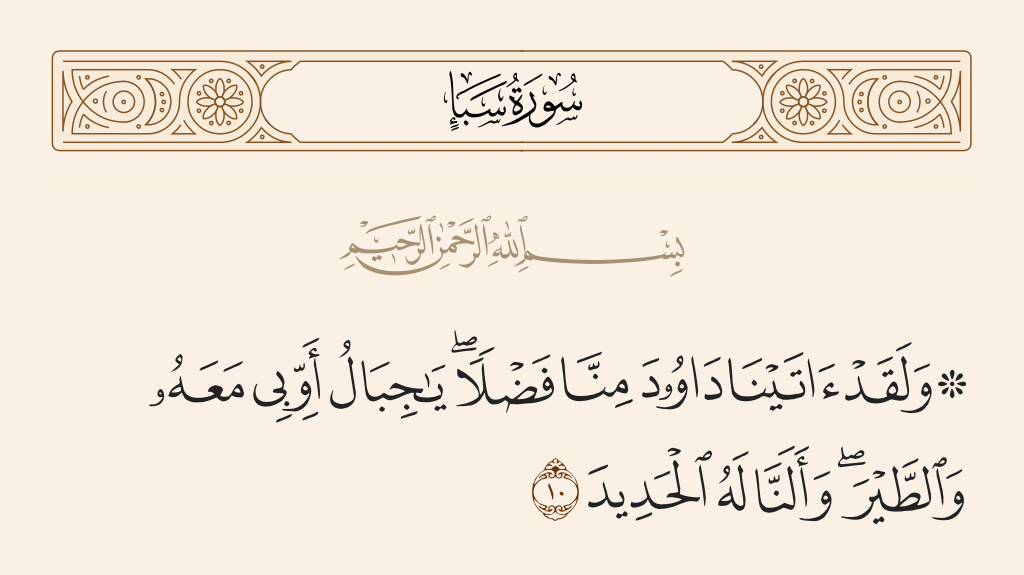 سُورَةُ سَبَإٍ
بِسْمِ ٱللَّهِ ٱلرَّحْمَٰنِ ٱلرَّحِيمِ
۞ وَلَقَدْ ءَاتَيْنَا دَاوُۥدَ مِنَّا فَضْلًا ۖ يَٰجِبَالُ أَوِّبِى مَعَهُۥ
وَٱلطَّيْرَ ۖ وَأَلَنَّا لَهُ ٱلْحَدِيدَ ١٠